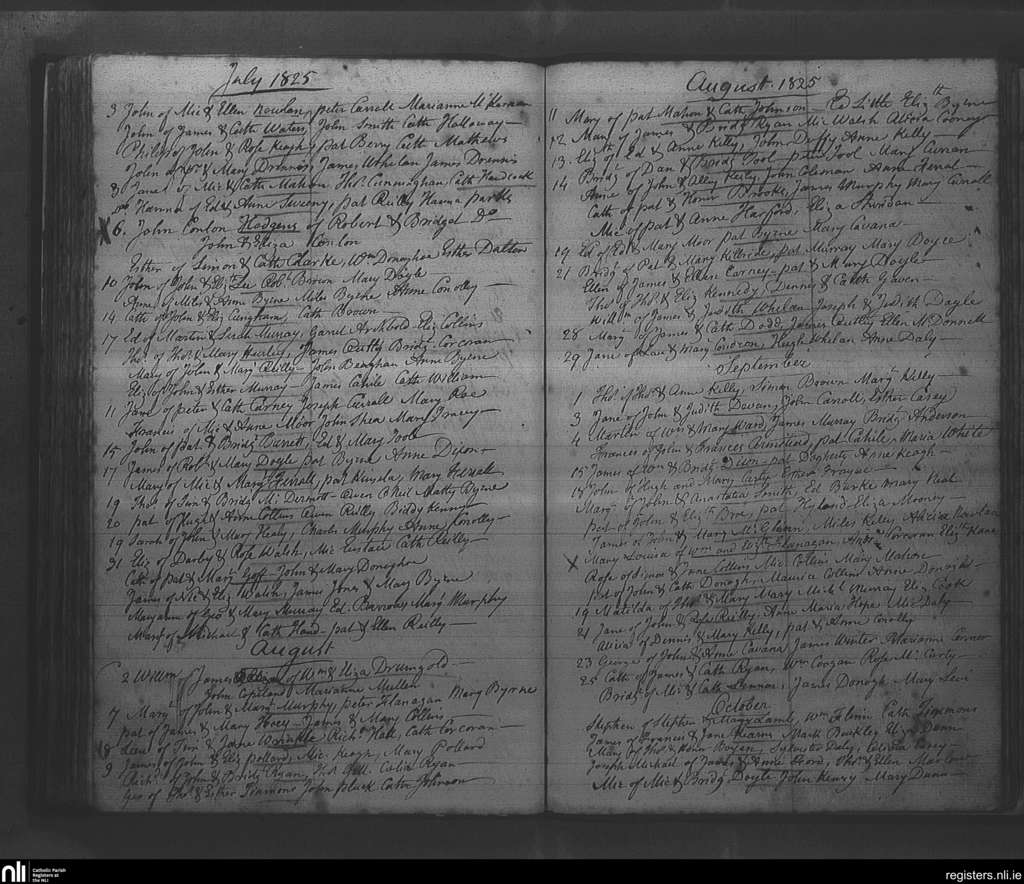 July 1825
3 John of Mic & Ellen Nowlan, peter Carroll Marianne McKernan
John of James & Cath Waters, John Smith Cath Holloway
Philip of John & Rose Keogh, pat Berry Cath Mathews
John of & Mary Drennis, James Whelan James Drennis
8 of Mic & Cath Mahon, Thos Cunningham, Cath Handcock
Hanna of Edd & Anne Sweeny, pat Reilly Hanna parks
X 6. John Conlon Hodgens of Robert & Bridget Do
John & Eliza Conlon
Esther of Simon & Cath Clarke, Wm Donoghoe Esther Dalton
10 John of John & Elizth Lee Robt Brown Mary Doyle
Anne of Miles & Anne Byrne Miles Byrne & Anne Conolly
14 Cath of John & Eliz Cath Brown
17 Ed of Martin & Sarah Murray, Garret Archbold Eliz Collins
Thos of Thos & Mary Hurley, James Bridt Corcoran
Mary of John & Mary Reilly John Beaghan Anne Byrne
Eliz of John & Esther Murray James Cahile Cath William
11 Jane of peter & Cath Carney Joseph Carroll Mary Roe
Francis of Mic & Anne Moor John Shea Mary Tracey
15 John of pat & Bridt Barrett, Ed & Mary Toole
17 James of Robt & Mary Doyle pat Byrne Anne Dixon
Mary of Mic & Mary Ferrall, pat Mary Ferrall
19 Thos of & Bridg McDermott Owen O'Neil Matty Byrne
20 pat of Hugh & Anne Collins Owen Reilly Biddy Kenny
19 Sarah of John & Mary Healy, Charles Murphy Anne Conolly
21 Eliz of Darby & Rose Walsh, Mic Eustace Cath Reilly
Cath of pat & Mary Goff John & Mary Donoghoe
James of Mic & Eliz Walsh, James Jones & Mary Byrne
Maryanne of Geo & Mary Murray Ed Burrows Mary Murphy
Mary of Michael & Cath Hand pat & Ellen Reilly
August
2 Willm James of Wm & Eliza Drumgold
John Copeland Marianne Mullen
7 Margt of John & Mary Murphy, peter Flanagan Mary Byrne
pat of James & Mary Hoey James & Mary Collins
of Tim & Jane Wrinkle, Richd Hall, Cath Corcoran
9 James of John & Eliz pollard, Mic Keogh, Mary Pollard
Richd of John & Bridt Ryan, Thos Celia Ryan
Geo of Thos & Esther Timmons John pluck Cath Johnson
August 1825
11 Mary of pat Mahon & Cath Johnson Ed Little Elizth Byrne
12 Mary of James & Bridg Ryan Mic Walsh Alicia Cooney
13 Eliz of Ed & Anne Kelly, John Duffy Anne Kelly
Bridg of Dan & Bridg Tool peter Tool Mary Curran
14 Anne of John & Alley Kelly John Coleman Anne Ferral
Cath of pat & Honor Brooke, James Murphy Mary Carroll
Mic of pat & Anne Harford, Eliza Sheridan
19 Ed of Ed & Mary Moor pat Byrne Mary Cavana
21 Bridg of Pat & Mary Kilbride, pat Murray Mary Boyce
Ellen of James & Ellen Carney pat & Mary Doyle
Thos of Thos & Eliz Kennedy, Dennis & Cath Gaven
Willm of James & Judith Whelan Joseph & Judith Dagle
28 Mary of James & Cath Dodd, James Ellen McDonnell
29 Jane of & Mary Condron, Hugh Whelan Anne Daly
September
1 Thos of Thos & Anne Kelly, Simon Brown Margt Kelly
3 Jane of John & Judith Devan, John Carroll, Esther Casey
4 Martin of Wm & Mary Ward, James Murray Bridg Anderson
Frances of John & Frances Armstead, pat Cahile Maria White
15 James of Wm & Bridg Dixon pat Dogherty Anne Keagh
18 John of Hugh and Mary Carty
Mary of John & Anastatia Smith, Ed Burke Mary Neal
pat of John & Elizth Bree, pat Hyland Eliza Mooney
James of John & Mary McGlann, Miles Kelly, Alicia Nowlan
X Mary Louisa of Wm and Flanagan, Andw Corcoran Elizth Kane
Rose of Simon & Jane Collins Mic Collins Mary Malone
pat of John & Cath Donogh, Maurice Collins Anne Donoghoe
19 Matilda of Thos & Mary Mary Mick Murray Eliz Cook
21 Jane of John & Rose Reilly, Anne Maria Hope Mic Daly
Alicia of Dennis & Mary Kelly, pat & Anne Conolly
23 George of John & Anne Cavana James Winter Marianne Connor
25 Cath of James & Cath Ryan, Wm Corgan Rose McCarty
Bridg of Mic & Cath Lennon, James Donogh Mary Levi
October
Stephen of Stephen & Mary Lamb, Wm Cath Timmons
James of & Jane Kearns Mark Buckley Eliz Dunn
Mary of Thos & Honor Bowen, Sylvester Daly, Celicia Carey
Joseph Michael of James & Anne Hord, Thos & Ellen Marlow
Mic of Mic & Bridg Doyle John Kenry Mary Dunn
nli
Catholic Parish
Registers at
the NLI
registers.nli.ie